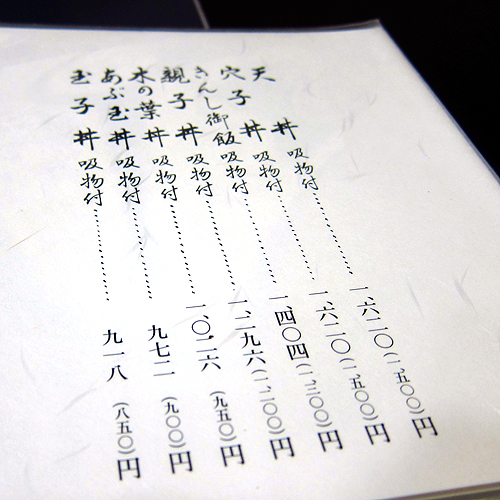 天丼 吸物付………………一、六二〇(一、五〇〇)円
穴子丼 吸物付………………一、六二〇(一、五〇〇)円
きんし御飯 吸物付………………一、四〇四(一、三〇〇)円
親子丼 吸物付………………一、二九六(一、二〇〇)円
木の葉丼 吸物付………………一、〇二六(九五〇)円
あぶ玉丼 吸物付………………九七二(九〇〇)円
玉子丼 吸物付………………九一八(八五〇)円